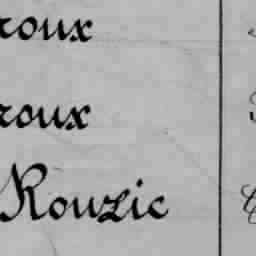 roux
roux
Rouzic